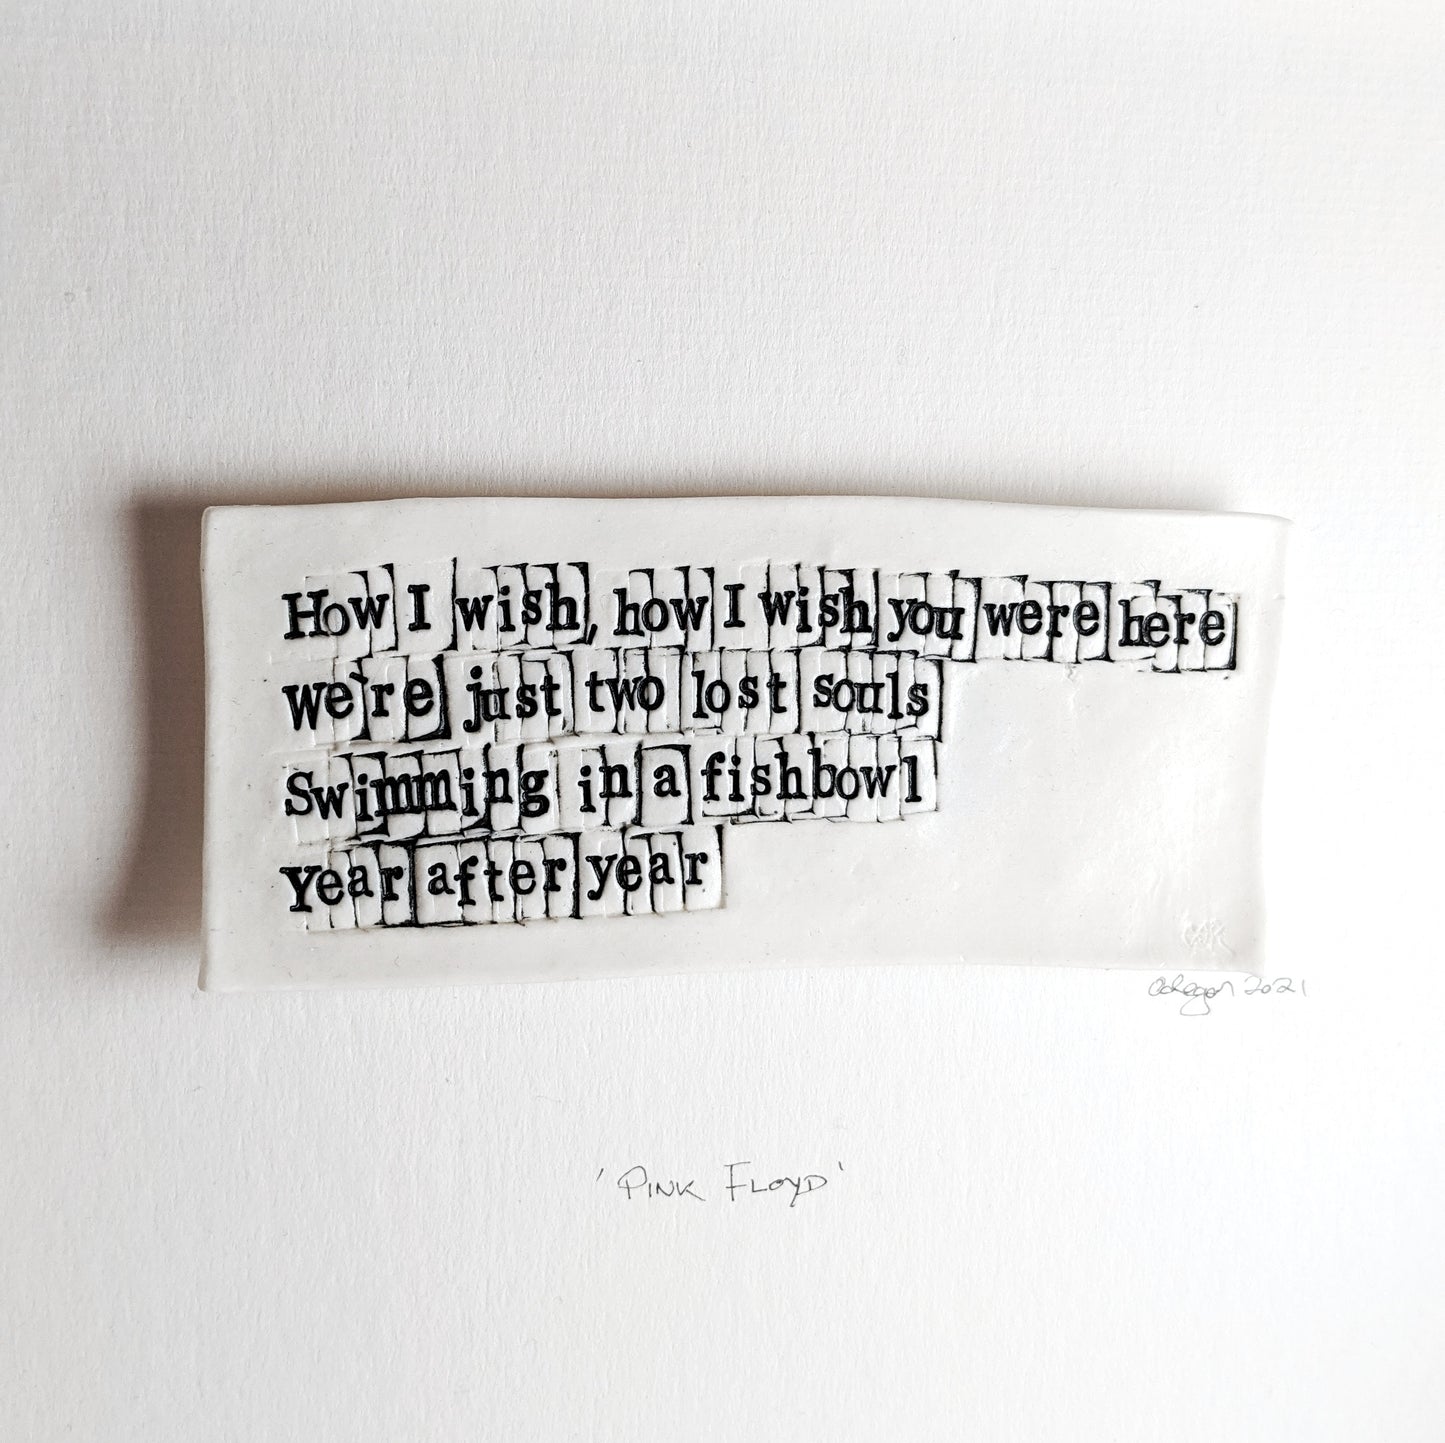 How I wish, how I wish you were here
we're just two lost souls
Swimming in a fishbowl
Year after year
2021
'PINK FLOYD'